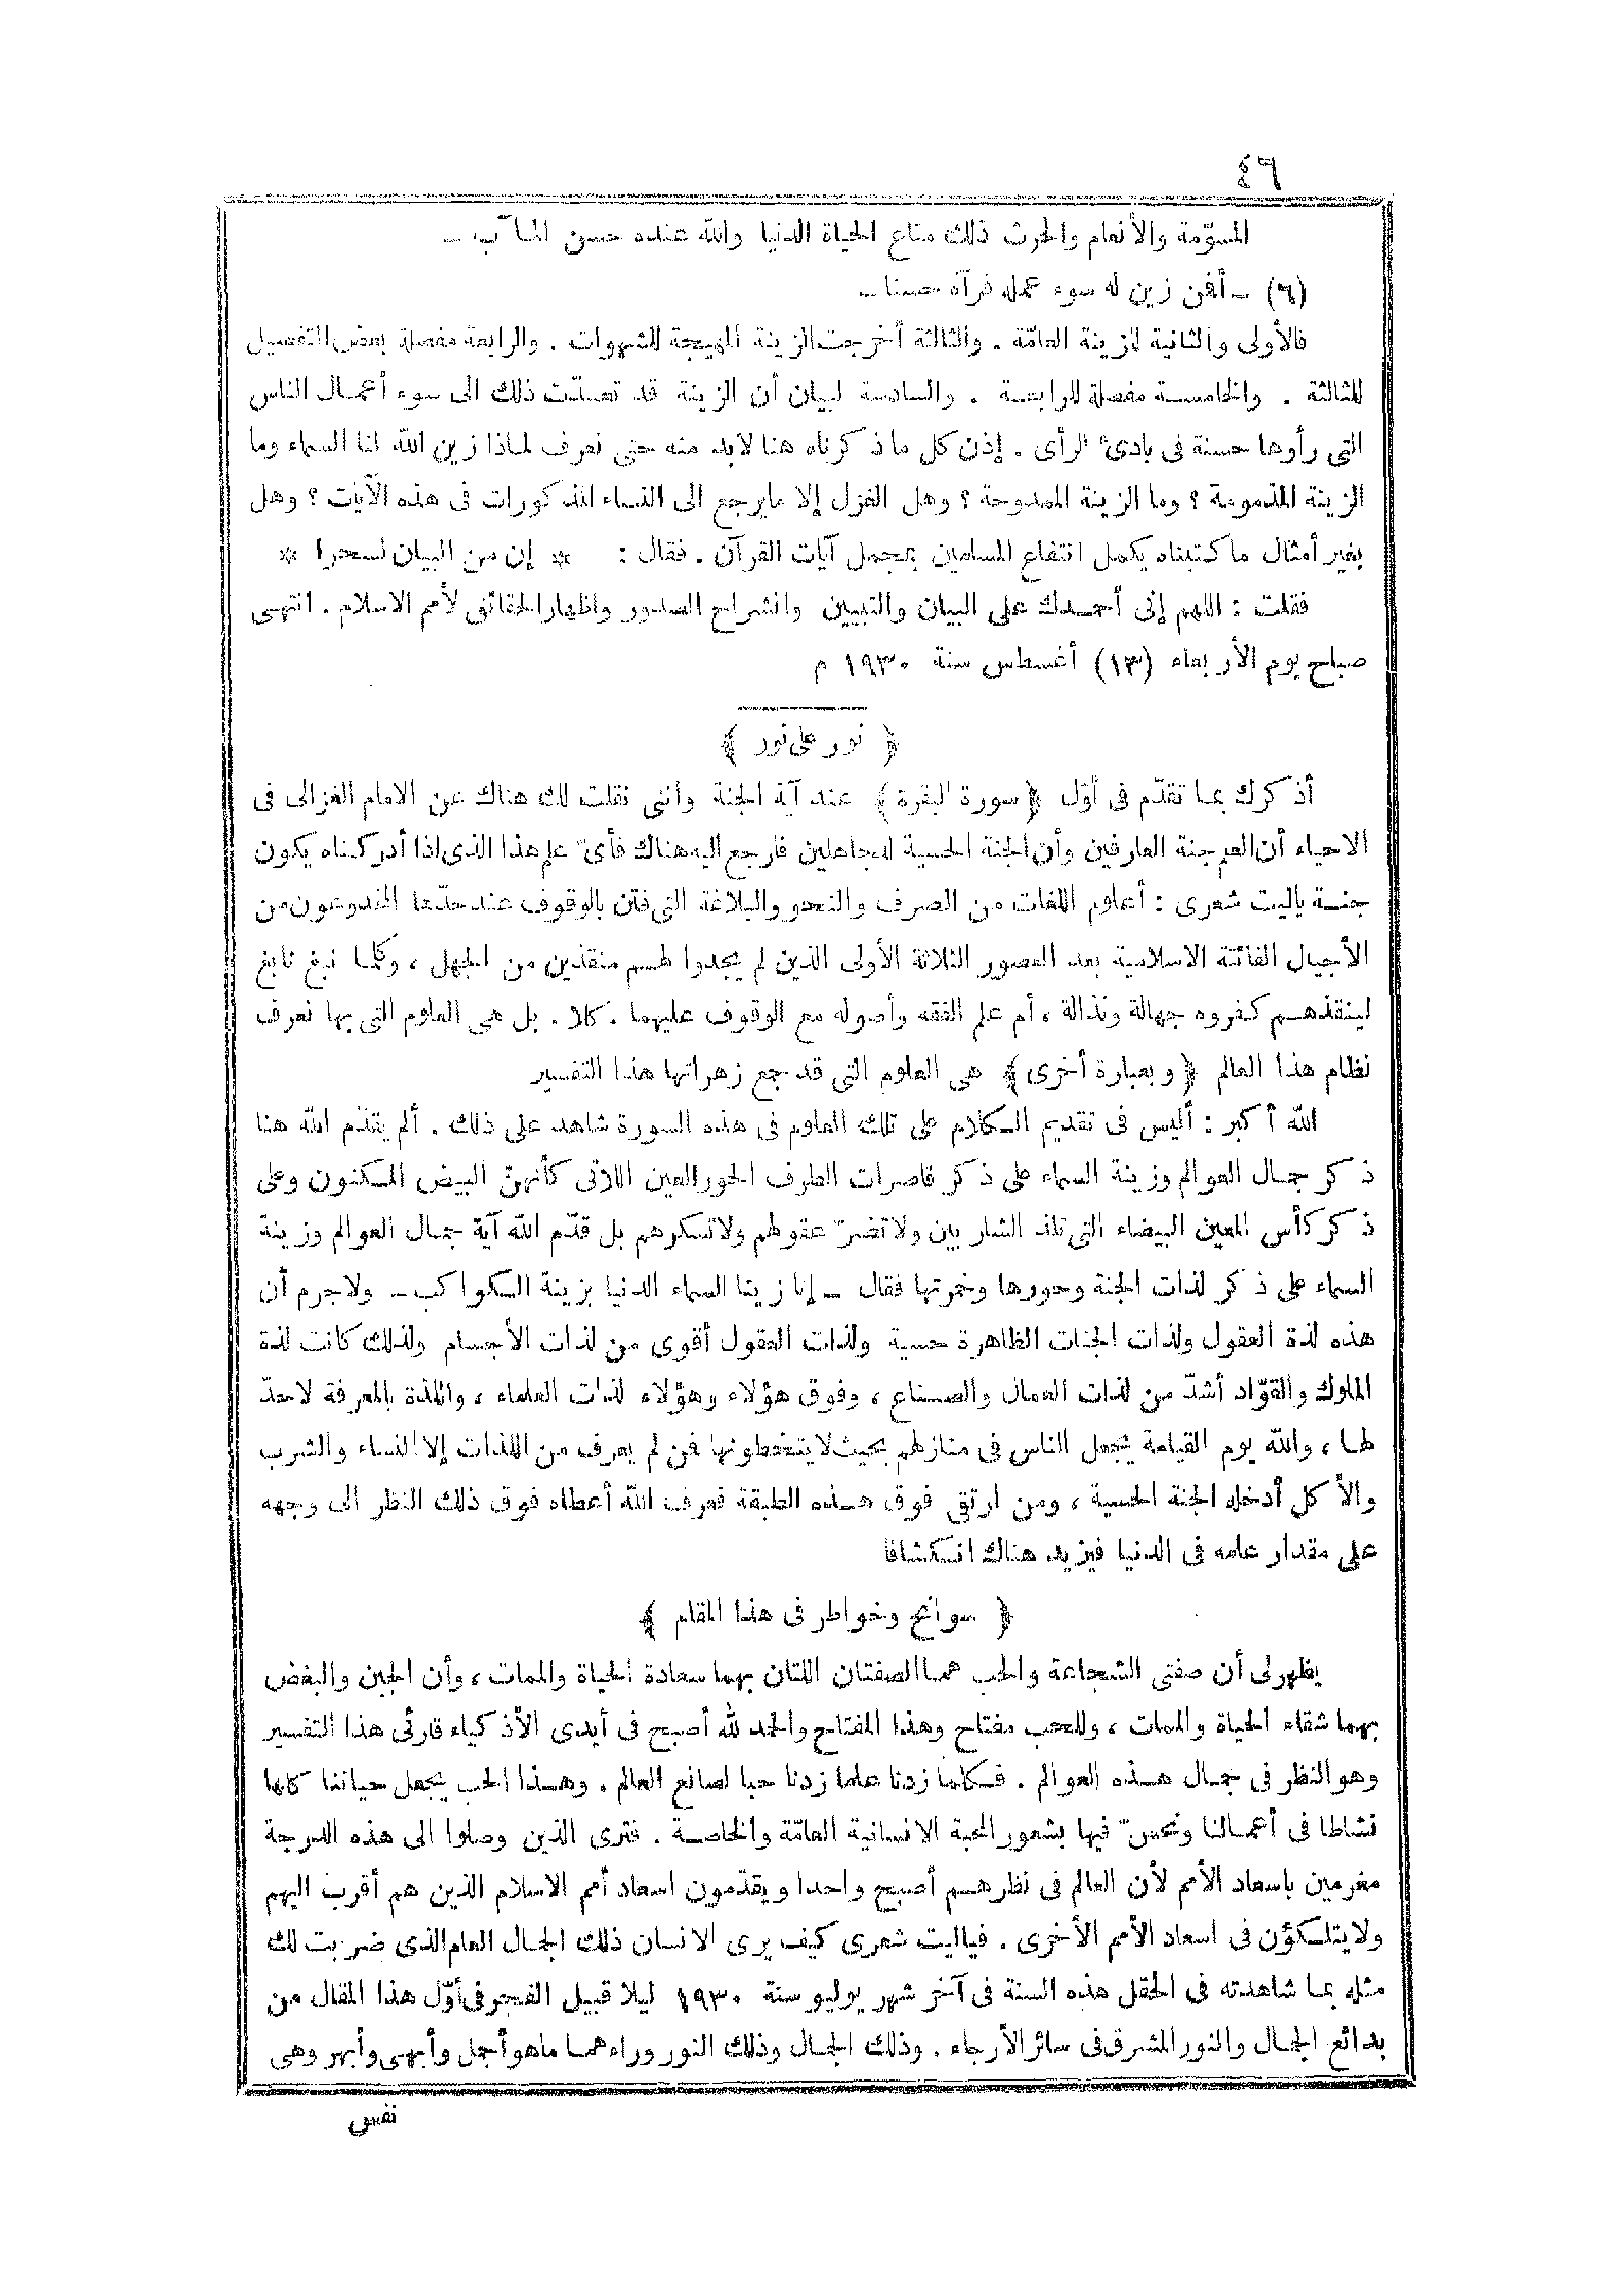 ٤٦
المسوّمة والأنعام والحرث ذلك متاع الحياة الدنيا والله عنده حسن المآب ـ
(٦) ـ أفمن زين له سوء عمله فرآه حسنا ـ
فالأولى والثانية للزينة العامّة . والثالثة أخرجت الزينة المهيجة للشهوات . والرابعة مفصلة بعض التفصيل
للثالثة . والخامسة مفصلة للرابعة . والسادسة لبيان أن الزينة قد تعدّت ذلك الى سوء أعمال الناس
التى رأوها حسنة فى بادئ الرأى . إذن كل ماذكرناه هنا لابد منه حتى نعرف لماذا زين الله لنا السماء وما
الزينة المذمومة ؟ وما الزينة الممدوحة ؟ وهل الغزل إلا مايرجع الى النساء المذكورات فى هذه الآيات ؟ وهل
بغير أمثال ما كتبناه يكمل انتفاع المسلمين بمجمل آيات القرآن . فقال : * إن من البيان لسحرا *
فقلت : اللهم إنى أحمدك على البيان والتبيين وانشراح الصدور واظهار الحقائق لأمم الاسلام . انتهى
صباح يوم الأربعاء (١٣) أغسطس سنة ١٩٣٠ م
﴿ نور على نور ﴾
أذكرك بما تقدّم فى أوّل ﴿ سورة البقرة ﴾ عند آية الجنة واننى نقلت لك هناك عن الامام الغزالى فى
الاحياء أن العلم جنة العارفين وأن الجنة الحسية للجاهلين فارجع اليه هناك فأىّ علم هذا الذى اذا أدركناه يكون
جنة ياليت شعرى : أعلوم اللغات من الصرف والنحو والبلاغة التى فتن بالوقوف عند حدّها المخدوعون من
الأجيال الفائتة الاسلامية بعد العصور الثلاثة الأولى الذين لم يجدوا لهم منقذين من الجهل ، وكلما نبغ نابغ
لينقذهم كفروه جهالة ونذالة ، أم علم الفقه وأصوله مع الوقوف عليهما . كلا . بل هى العلوم التى بها نعرف
نظام هذا العالم ﴿ وبعبارة أخرى ﴾ هى العلوم التى قد جمع زهراتها هذا التفسير
الله أكبر : أليس فى تقديم الكلام على تلك العلوم فى هذه السورة شاهد على ذلك . ألم يقدّم الله هنا
ذكر جمال العوالم وزينة السماء على ذكر قاصرات الطرف الحور العين اللاتى كأنهنّ البيض المكنون وعلى
ذكر كأس المعين البيضاء التى تلذ الشاربين ولا تضرّ عقولهم ولا تسكرهم بل قدّم الله آية جمال العوالم وزينة
السماء على ذكر لذات الجنة وحورها وخمرتها فقال ـ إنا زينا السماء الدنيا بزينة الكواكب ـ ولاجرم أن
هذه لذة العقول ولذات الجنات الظاهرة حسية ولذات العقول أقوى من لذات الأجسام ولذلك كانت لذة
الملوك والقوّاد أشدّ من لذات العمال والصناع ، وفوق هؤلاء وهؤلاء لذات العلماء ، واللذة بالمعرفة لاحدّ
لها ، والله يوم القيامة يجعل الناس فى منازلهم بحيث لا يتخطونها فمن لم يعرف من اللذات إلا النساء والشرب
والأكل أدخله الجنة الحسية ، ومن ارتقى فوق هذه الطبقة فعرف الله أعطاه فوق ذلك النظر الى وجهه
على مقدار علمه فى الدنيا فيزيد هناك انكشافا
﴿ سوانح وخواطر فى هذا المقام ﴾
يظهر لى أن صفتى الشجاعة والحب هما الصفتان اللتان بهما سعادة الحياة والممات ، وأن الجبن والبغض
بهما شقاء الحياة والممات ، وللحب مفتاح وهذا المفتاح والحمد لله أصبح فى أيدى الأذكياء قارئى هذا التفسير
وهو النظر فى جمال هذه العوالم . فكلما زدنا علما زدنا حبا لصانع العالم . وهذا الحب يجعل حياتنا كلها
نشاطا فى أعمالنا ونحسّ فيها بشعور المحبة الانسانية العامّة والخاصة . فترى الذين وصلوا الى هذه الدرجة
مغرمين باسعاد الأمم لأن العالم فى نظرهم أصبح واحدا ويقدّمون اسعاد أمم الاسلام الذين هم أقرب اليهم
ولا يتلكؤن فى اسعاد الأمم الأخرى . فياليت شعرى كيف يرى الانسان ذلك الجمال العام الذى ضربت لك
مثله بما شاهدته فى الحقل هذه السنة فى آخر شهر يوليو سنة ١٩٣٠ ليلا قبيل الفجر فى أوّل هذا المقال من
بدائع الجمال والنور المشرق فى سائر الأرجاء . وذلك الجمال وذلك النور وراءهما ماهو أجمل وأبهى وأبهر وهى
نفس